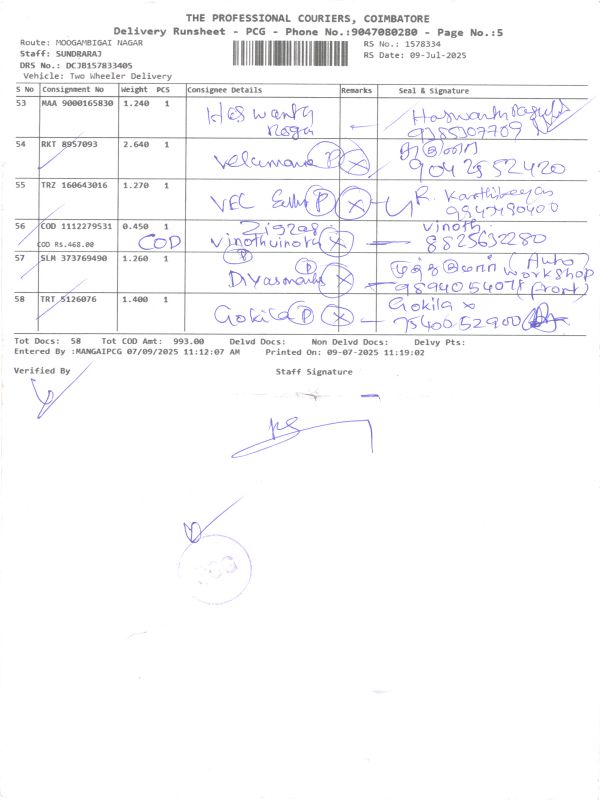 THE PROFESSIONAL COURIERS, COIMBATORE
Delivery Runsheet - PCG - Phone No.:9047080280 - Page No.:5
Route: MOOGAMBIGAI NAGAR
RS No.: 1578334
Staff: SUNDRARAJ
RS Date: 09-Jul-2025
DRS No.: DCJB157833405
Vehicle: Two Wheeler Delivery
S No Consignment No Weight PCS Consignee Details Remarks Seal & Signature
53 MAA 9000165830 1.240 1
54 RKT 8957093 2.640 1 P X
9042552420
55 TRZ 160643016 1.270 1 VEC P X R. Karthikeyan
56 COD 1112279531 0.450 1 Vinoth
COD RS.468.00 COD X 8825632280
57 SLM 373769490 1.260 1 P (Auto
P X workshop
front)
58 TRT 5126076 1.400 1 Gokila P X Gokila
75400 52900
Tot Docs: 58 Tot COD Amt: 993.00 Delvd Docs: Non Delvd Docs: Delvy Pts:
Entered By :MANGAIPCG 07/09/2025 11:12:07 AM Printed On: 09-07-2025 11:19:02
Verified By Staff Signature